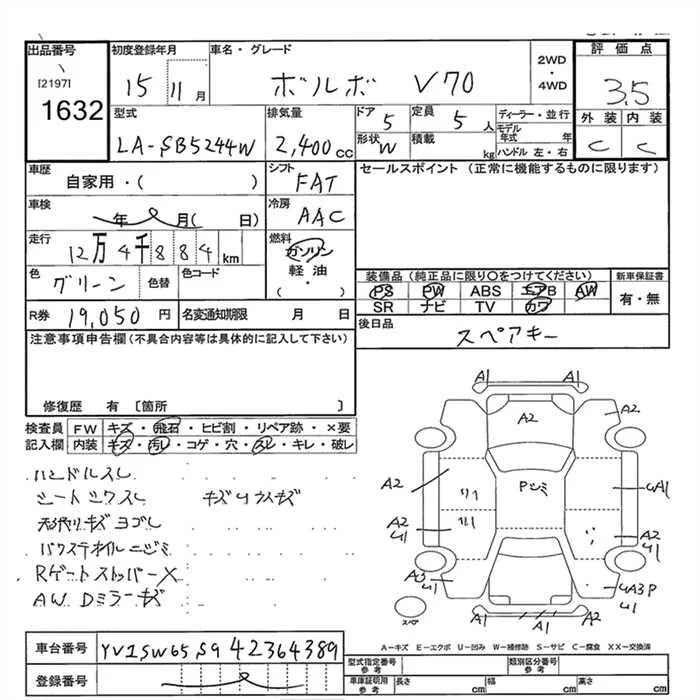 出品番号 初度登録年月 車名・グレード 2WD・4WD 評価点
[2197] 1632
15 11月 ボルボ V70 3.5
型式 排気量 ドア 定員 ディーラー・並行 外装 内装
LA-SB5244W 2,400cc 5 5人 モデル年式 年 C C
形状 W 積載 kg ハンドル 左・右
車歴 シフト セールスポイント (正常に機能するものに限ります)
自家用・( ) FAT
車検 年 月( 日) 冷房 AAC
走行 12万4千884km 燃料 ガソリン
軽油
( ・ )
色 グリーン 色替 色コード
装備品 (純正品に限り○をつけてください) 新車保証書
PS PW ABS エアB AW 有・無
SR ナビ TV カワ
R券 19,050円 名変通知期限 月 日
後日品 スペアキー
注意事項申告欄(不具合内容等は具体的に記入して下さい)
修復歴 有 〔箇所 〕
検査員 FW キズ・飛石・ヒビ割・リペア跡・×要
記入欄 内装 キズ・汚レ・コゲ・穴・スレ・キレ・破レ
ハンドルスレ
シートシワスレ キズ
内張りキズヨゴレ
Rゲートストッパー×
AW Dミラーキズ
A1 A1
A2 A2
Pシミ
A2 A1
A2 A2
A3 A3P
A2 A1
スペア
A-キズ E-エクボ U-凹み W-補修跡 S-サビ C-腐食 XX-交換済
車台番号 YV1SW65S942364389
型式指定番号 参考 類別区分番号 参考
登録番号
車庫証明用 参考 長さ cm 幅 cm 高さ cm